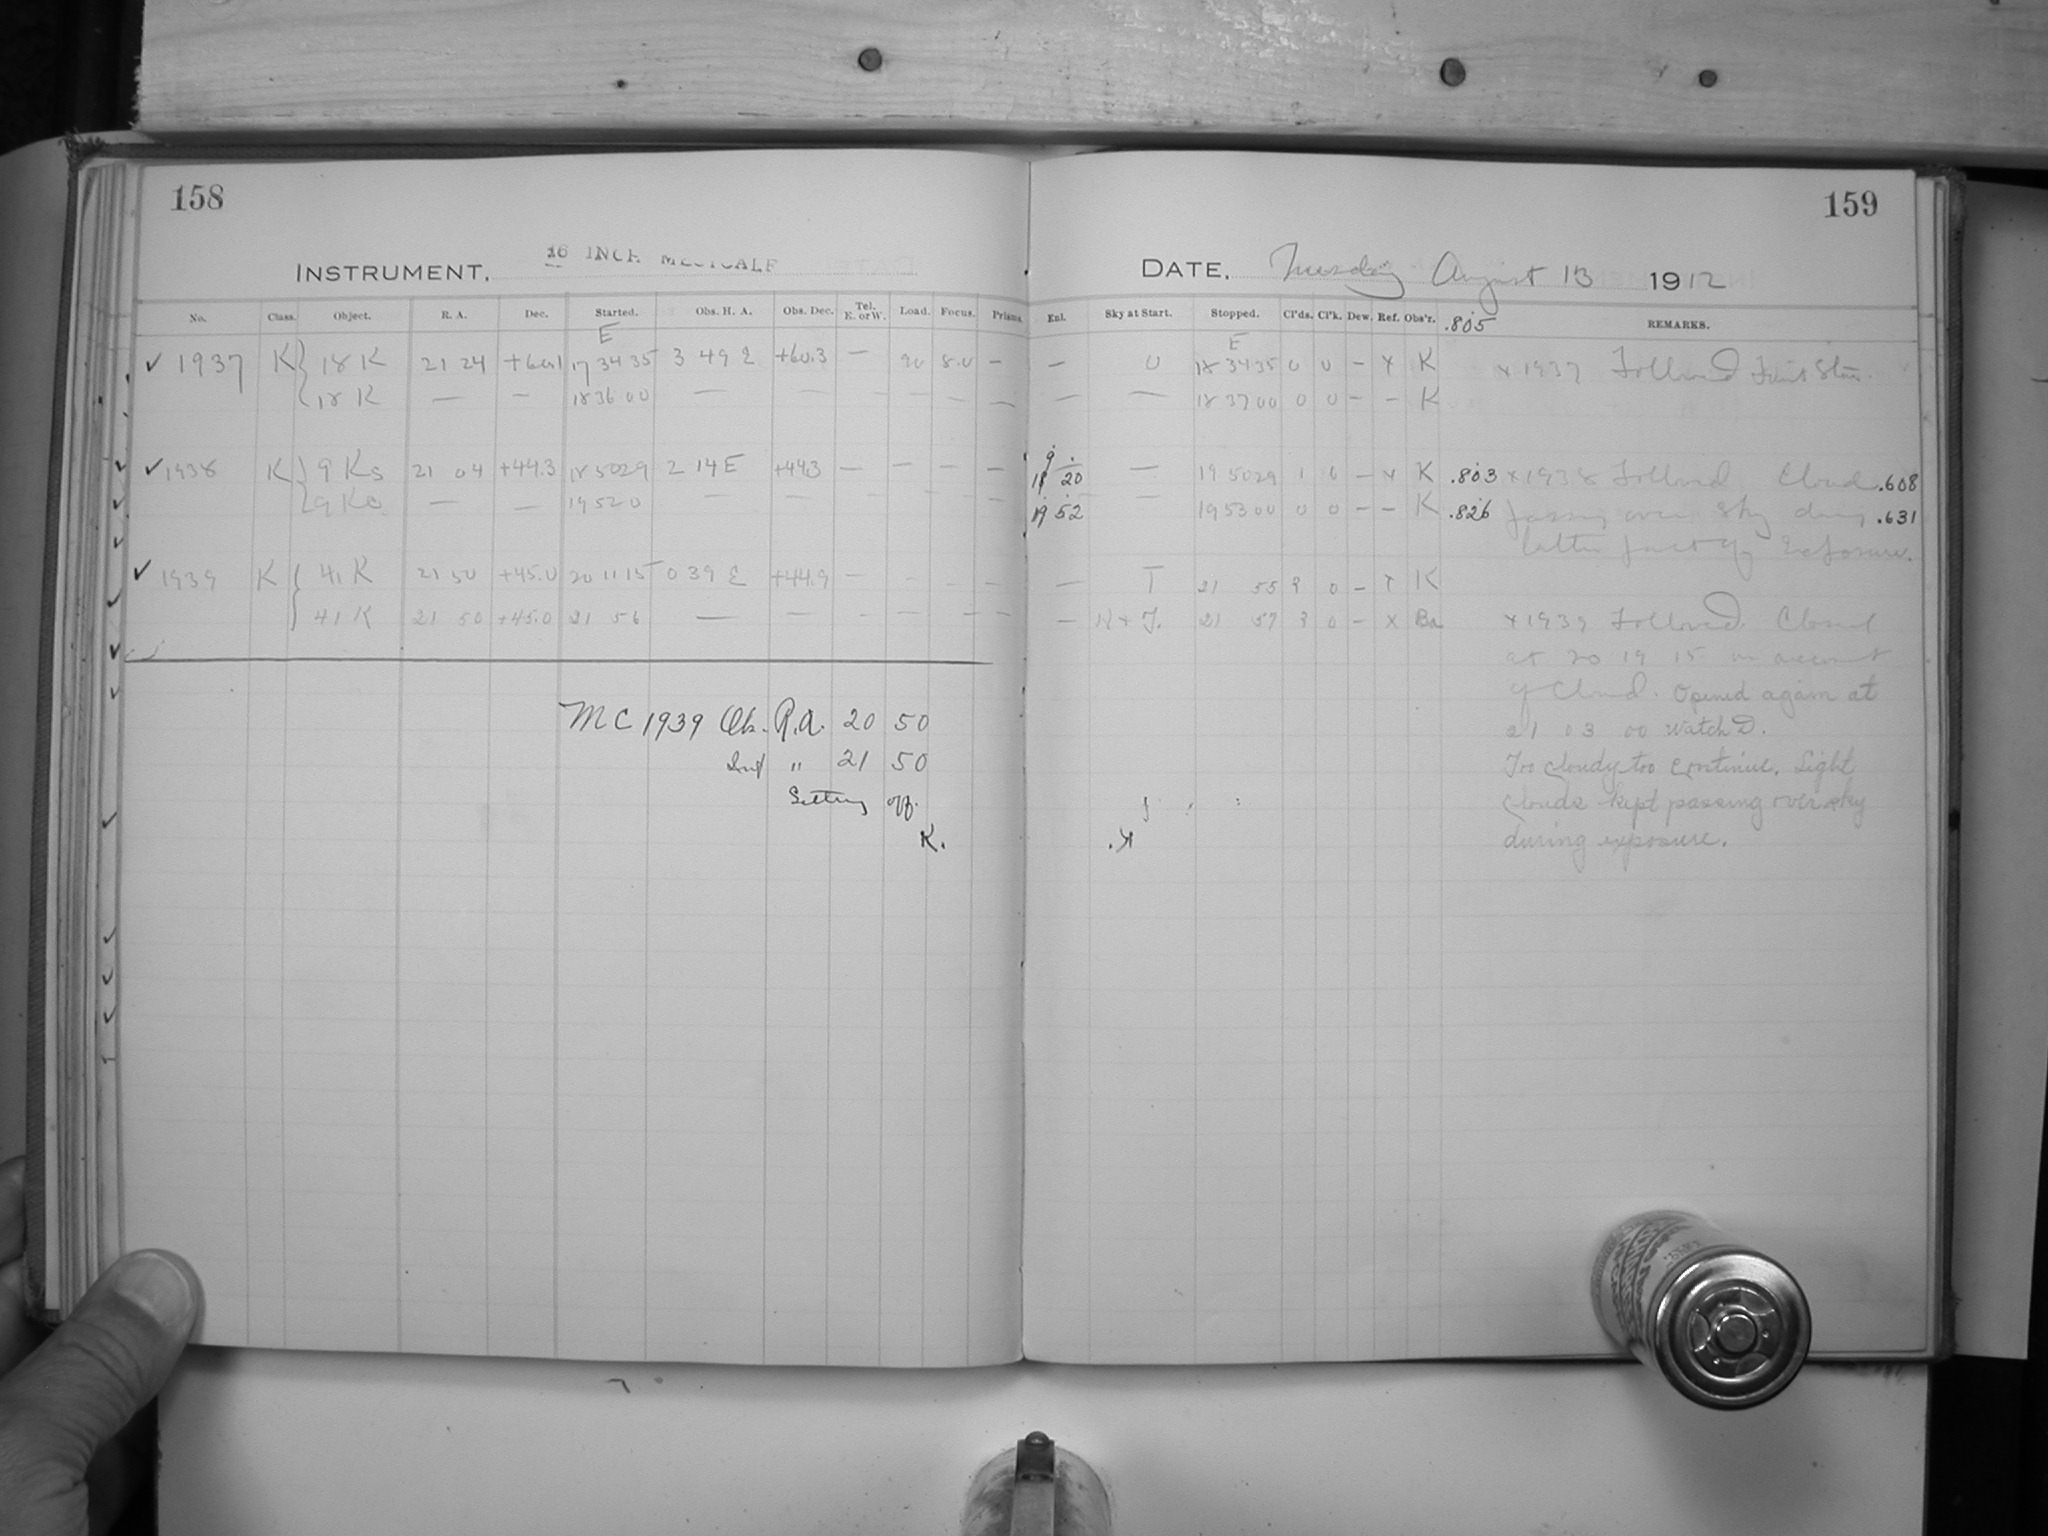 158
159
INSTRUMENT. 16 INCH METCALF
DATE. Tuesday August 13 1912
No. Class. Object. R. A. Dec. Started. Obs. H. A. Obs. Dec. Tel. E. or W. Load. Focus. Prisms. Enl. Sky at Start. Stopped. Cl'ds. Cl'k. Dew. Ref. Obs'r. .805 REMARKS.
E E
✓ 1937 K { 18 K 21 24 17 34 35 3 49 E +60.3 — 20 8.0 — — 0 18 34 35 0 0 – x K x 1937 Followed Faint Star.
18 K — — 18 36 00 — — — — — — — — 18 37 00 0 0 – – K
✓ 1938 K } 9 Ks 21 04 +44.3 18 50 29 2 14 E +44.3 — — — — 18 20 — 19 50 29 1 0 – x K .803 x 1938 Followed Cloud .608
— — 19 52 0 — — — — — — 19 52 — 19 53 00 0 0 – – K .826 passing over sky during .631
latter part of exposure.
✓ 1939 K { 41 K 21 50 +45.0 20 11 15 0 39 E +44.9 — — T 21 55 0 – K
41 K 21 50 +45.0 21 56 — — — — — — — — K + T. 21 57 0 – x Ba x 1939 Followed Closed
at 20 19 15 on account
of Cloud. Opened again at
21 03 00 Watch D.
Too cloudy too continue. Light
clouds kept passing over sky
during exposure.
MC 1939 Obs. R.A. 20 50
" 21 50
Setting off.
K.